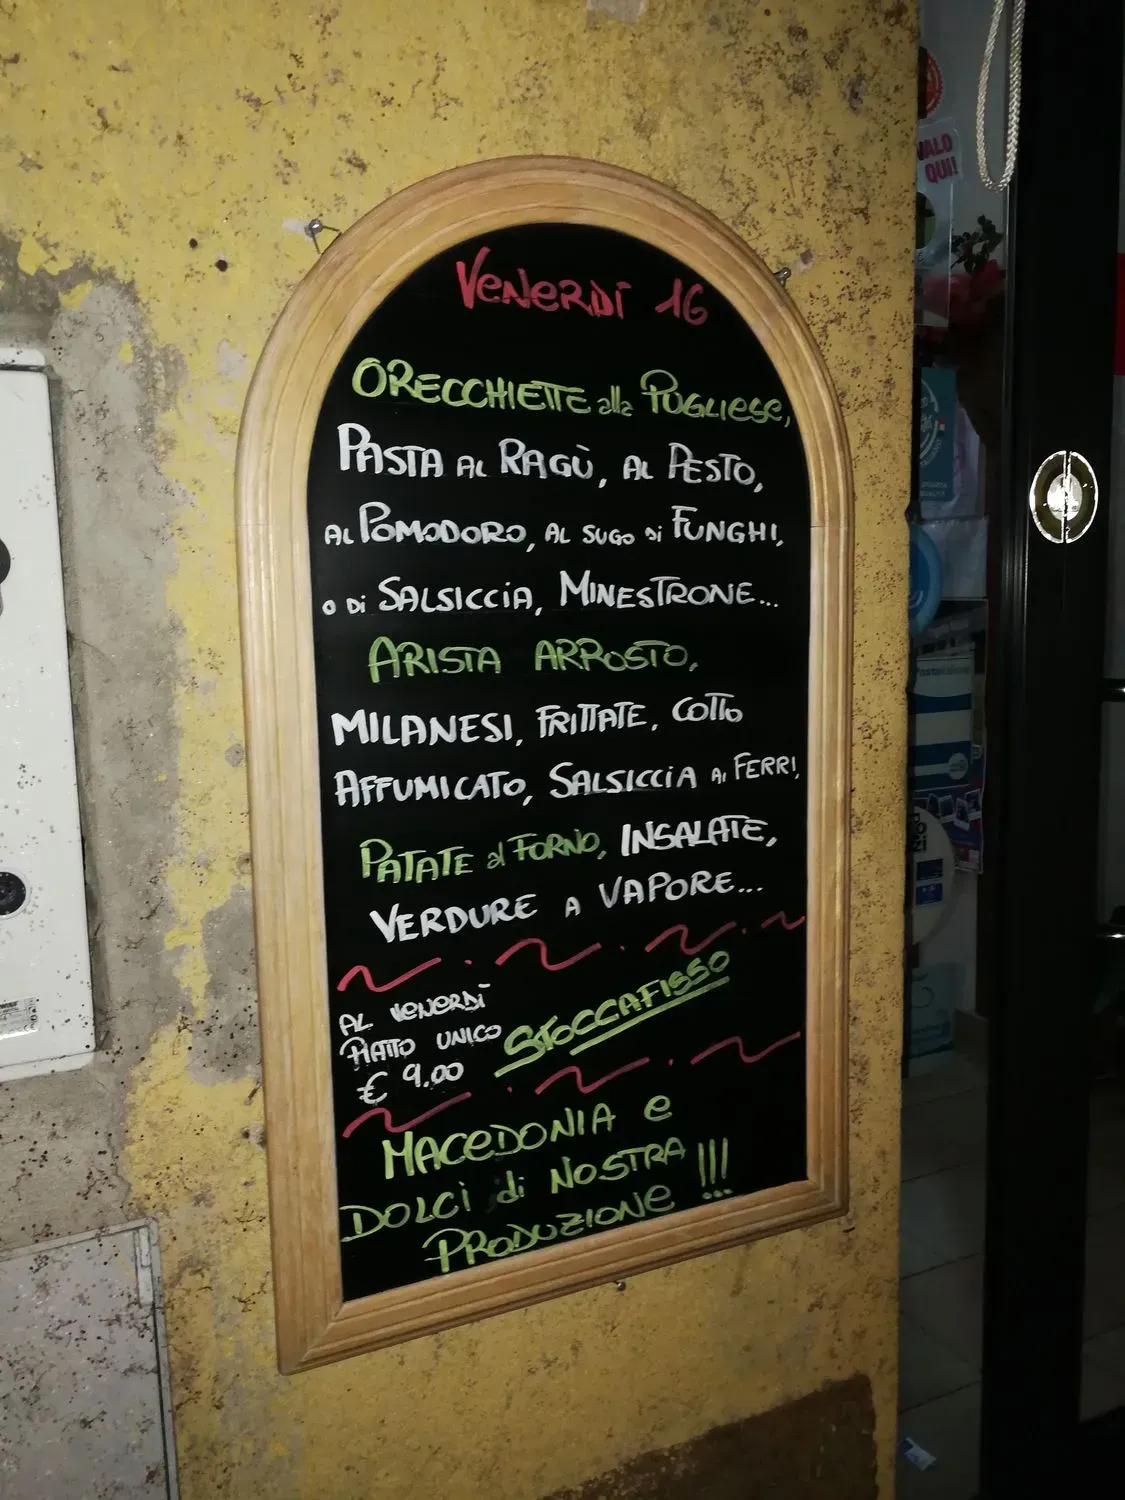 VENERDÌ 16
ORECCHIETTE alla PUGLIESE,
PASTA AL RAGÙ, AL PESTO,
AL POMODORO, AL SUGO DI FUNGHI,
O DI SALSICCIA, MINESTRONE...
ARISTA ARROSTO,
MILANESI, FRITTATE, COTTO
AFFUMICATO, SALSICCIA AI FERRI,
PATATE al FORNO, INSALATE,
VERDURE A VAPORE...
AL VENERDÌ
PIATTO UNICO
€ 9.00
STOCCAFISSO
MACEDONIA e
DOLCI di NOSTRA
PRODUZIONE !!!
VALO
QUI!